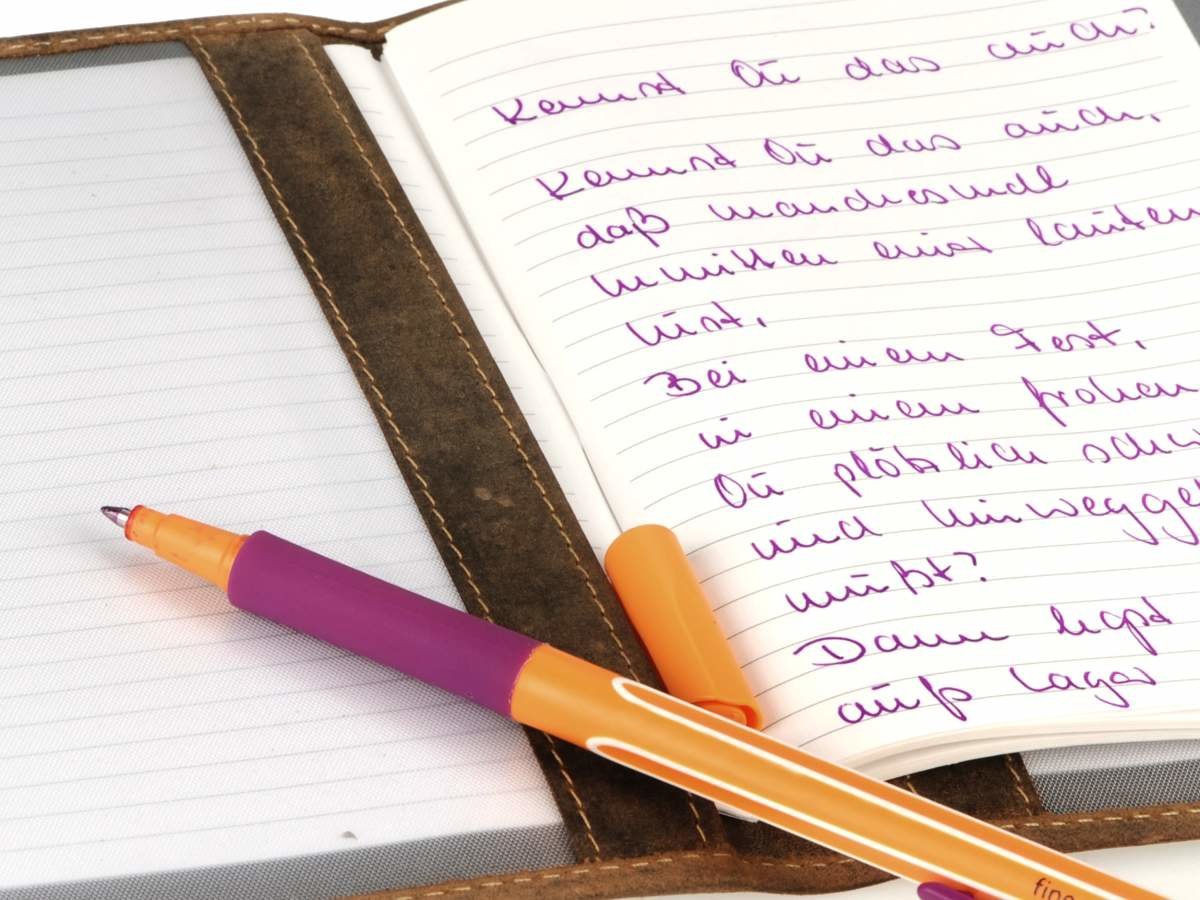 Kennst Du das auch?
Kennst Du das auch,
daß manchesmal
inmitten einer lauten
Lust,
Bei einem Fest,
in einem frohen
Du plötzlich schw
und hinwegge
mußt?
Dann legst
aufs Lager
fine